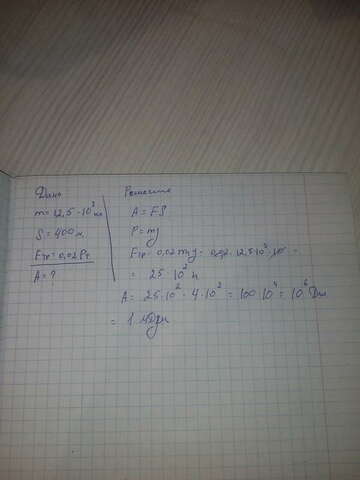 Дано
m = 12,5 · 10³ кг
S = 400 м
Fтр = 0,02 Pт
A = ?
Решение
A = FS
P = mg
Fтр = 0,02 mg = 0,02 · 12,5 · 10³ · 10 =
= 25 · 10² Н
A = 25 · 10² · 4 · 10² = 100 · 10⁴ = 10⁶ Дж
= 1 МДж